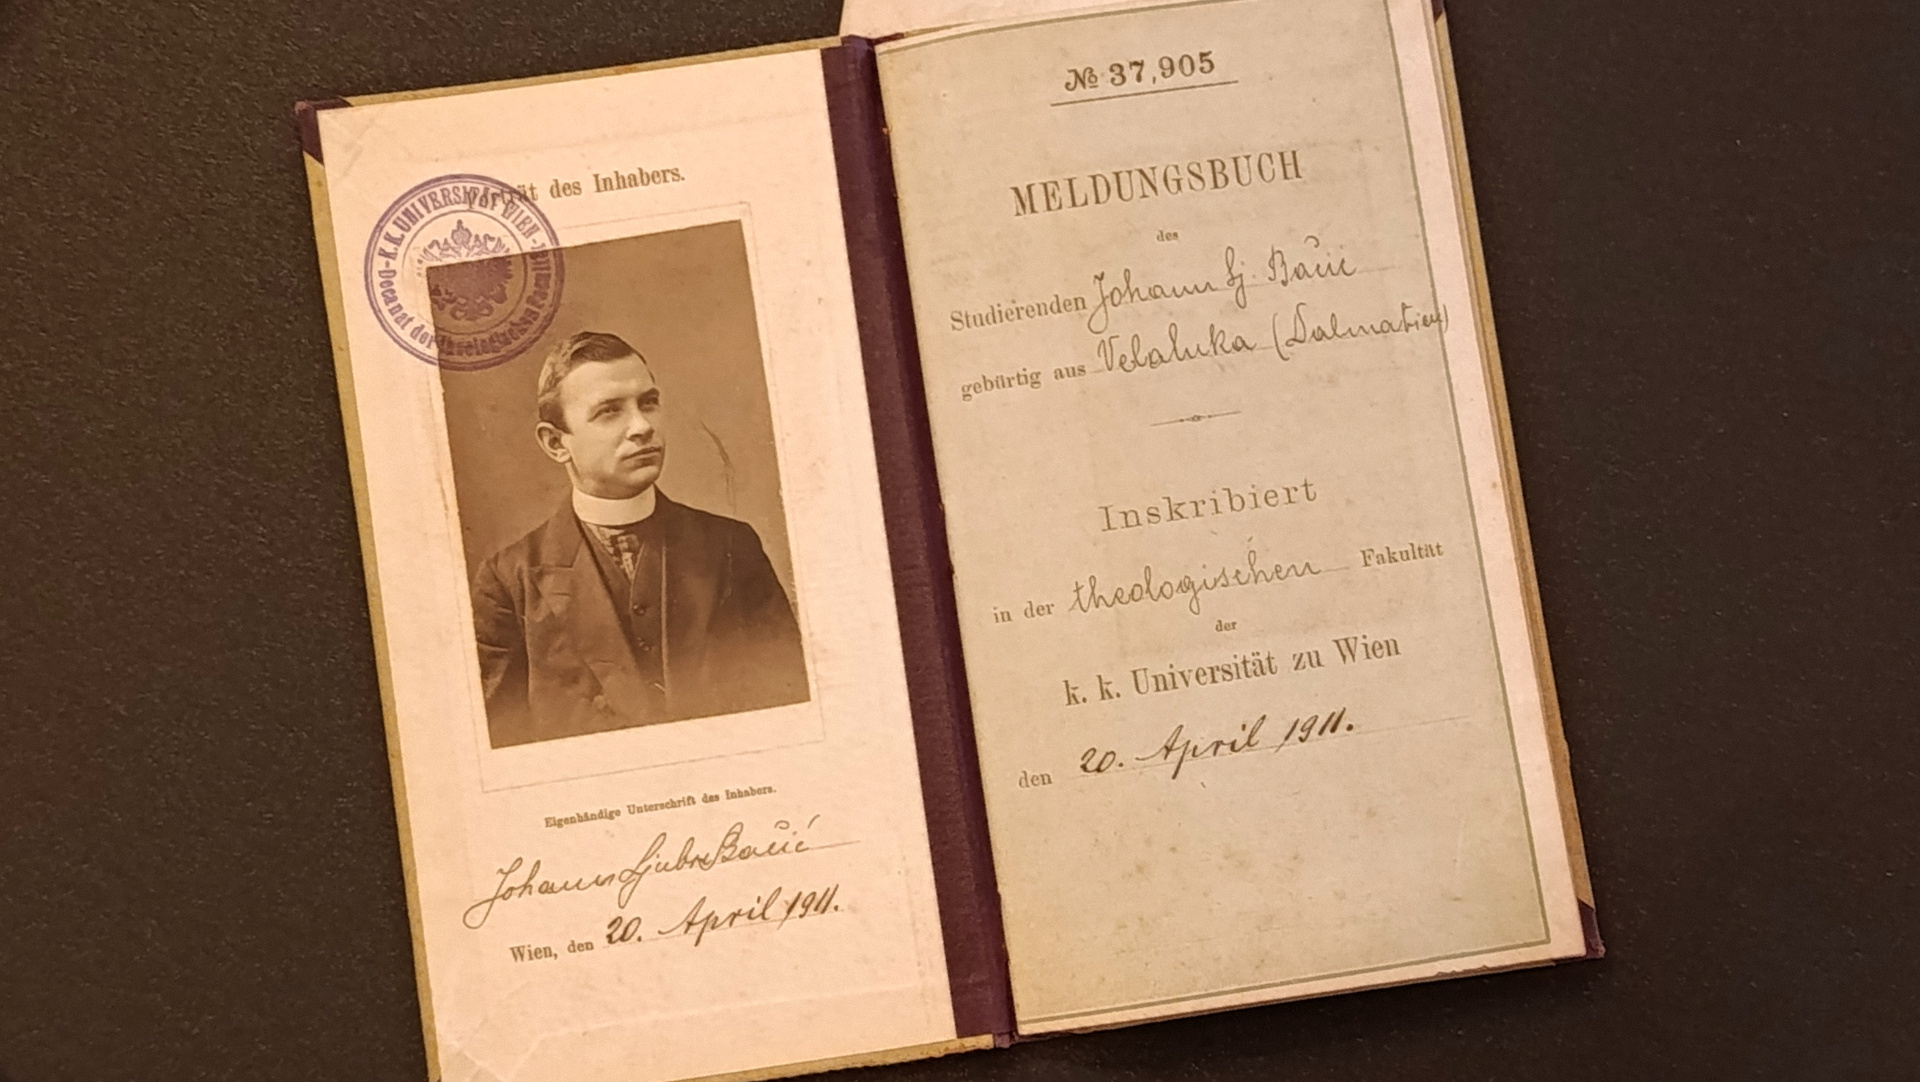 Porträt des Inhabers.
K.K. UNIVERSITÄT WIEN
Decanat der theologischen Facultät
Eigenhändige Unterschrift des Inhabers.
Johann Ljubo Bačić
Wien, den 20. April 1911.
№ 37,905
MELDUNGSBUCH
des
Studierenden Johann Lj. Bačić
gebürtig aus Velaluka (Dalmatien)
Inskribiert
in der theologischen Fakultät
der
k. k. Universität zu Wien
den 20. April 1911.